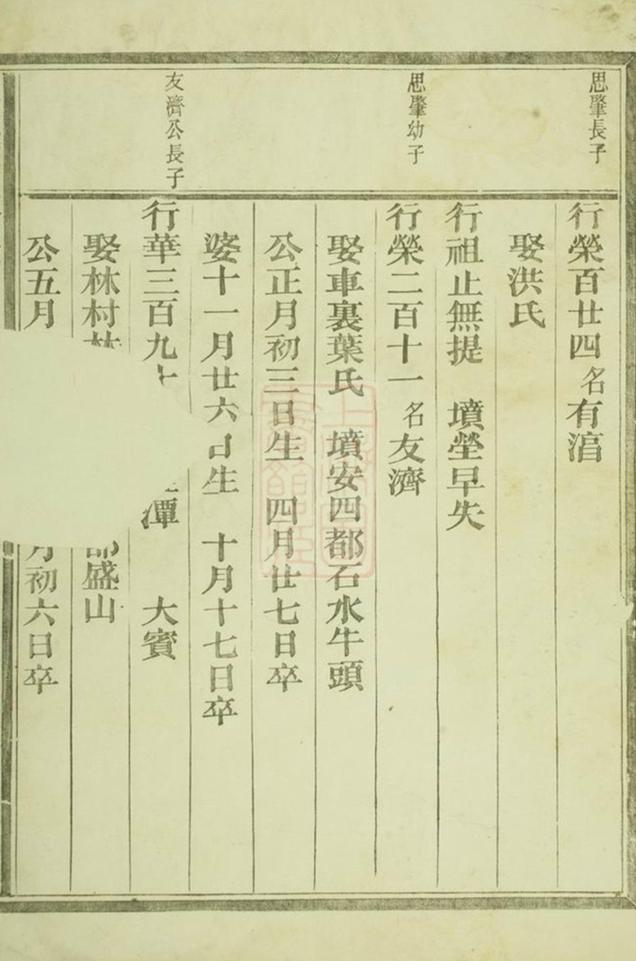 思肇長子
行榮百廿四 名有淯
娶洪氏
行祖止無提 墳塋早失
思肇幼子
行榮二百十一 名友濟
娶車裏葉氏 墳安四都石水牛頭
公正月初三日生 四月廿七日卒
婆十一月廿六日生 十月十七日卒
友濟公長子
行華三百九 潭 大賓
娶林村林 都盛山
公五月 月初六日卒